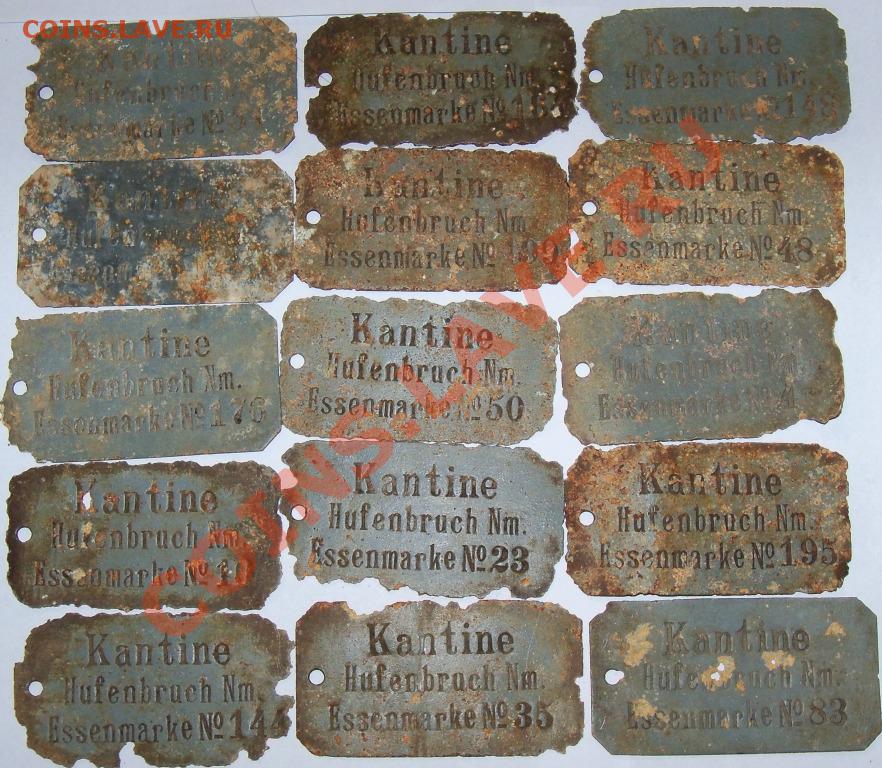 COINS.LAVE.RU
Kantine
Hufenbruch
Essenmarke No
Kantine
Hufenbruch Nm.
Essenmarke No
Kantine
Hufenbruch Nm.
Essenmarke 148
Kantine
Hufenbruch Nm.
Essenmarke No 199
Kantine
Hufenbruch Nm.
Essenmarke No 48
Kantine
Hufenbruch Nm.
Essenmarke No 176
Kantine
Hufenbruch Nm.
Essenmarke No 50
Kantine
Hufenbruch Nm.
Essenmarke No
Kantine
Hufenbruch Nm.
Essenmarke No
Kantine
Hufenbruch Nm.
Essenmarke No 23
Kantine
Hufenbruch Nm.
Essenmarke No 195
Kantine
Hufenbruch Nm.
Essenmarke No 144
Kantine
Hufenbruch Nm.
Essenmarke No 35
Kantine
Hufenbruch Nm.
Essenmarke No 83
COINS.LAVE.RU